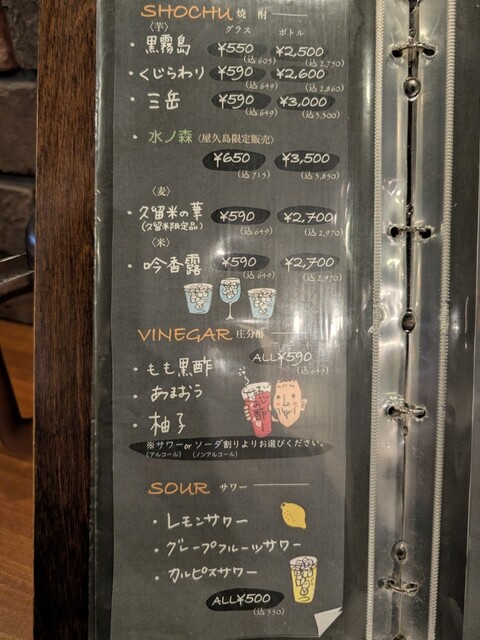 SHOCHU 焼 酎
グラス ボトル
〈芋〉
・黒霧島 ¥550 ¥2,500
(込605) (込2,750)
・くじらわり ¥590 ¥2,600
(込649) (込2,860)
・三岳 ¥590 ¥3,000
(込649) (込3,300)
・水ノ森〈屋久島限定販売〉
¥650 ¥3,500
(込715) (込3,850)
〈麦〉
・久留米の華 ¥590 ¥2,700
(久留米限定品) (込649) (込2,970)
〈米〉
・吟香露 ¥590 ¥2,700
(込649) (込2,970)
VINEGAR 庄分酢
ALL¥590
(込649)
・もも黒酢
・あまおう
・柚子
※サワーorソーダ割りよりお選びください。
(アルコール) (ノンアルコール)
SOUR サワー
・レモンサワー
・グレープフルーツサワー
・カルピスサワー
ALL¥500
(込550)